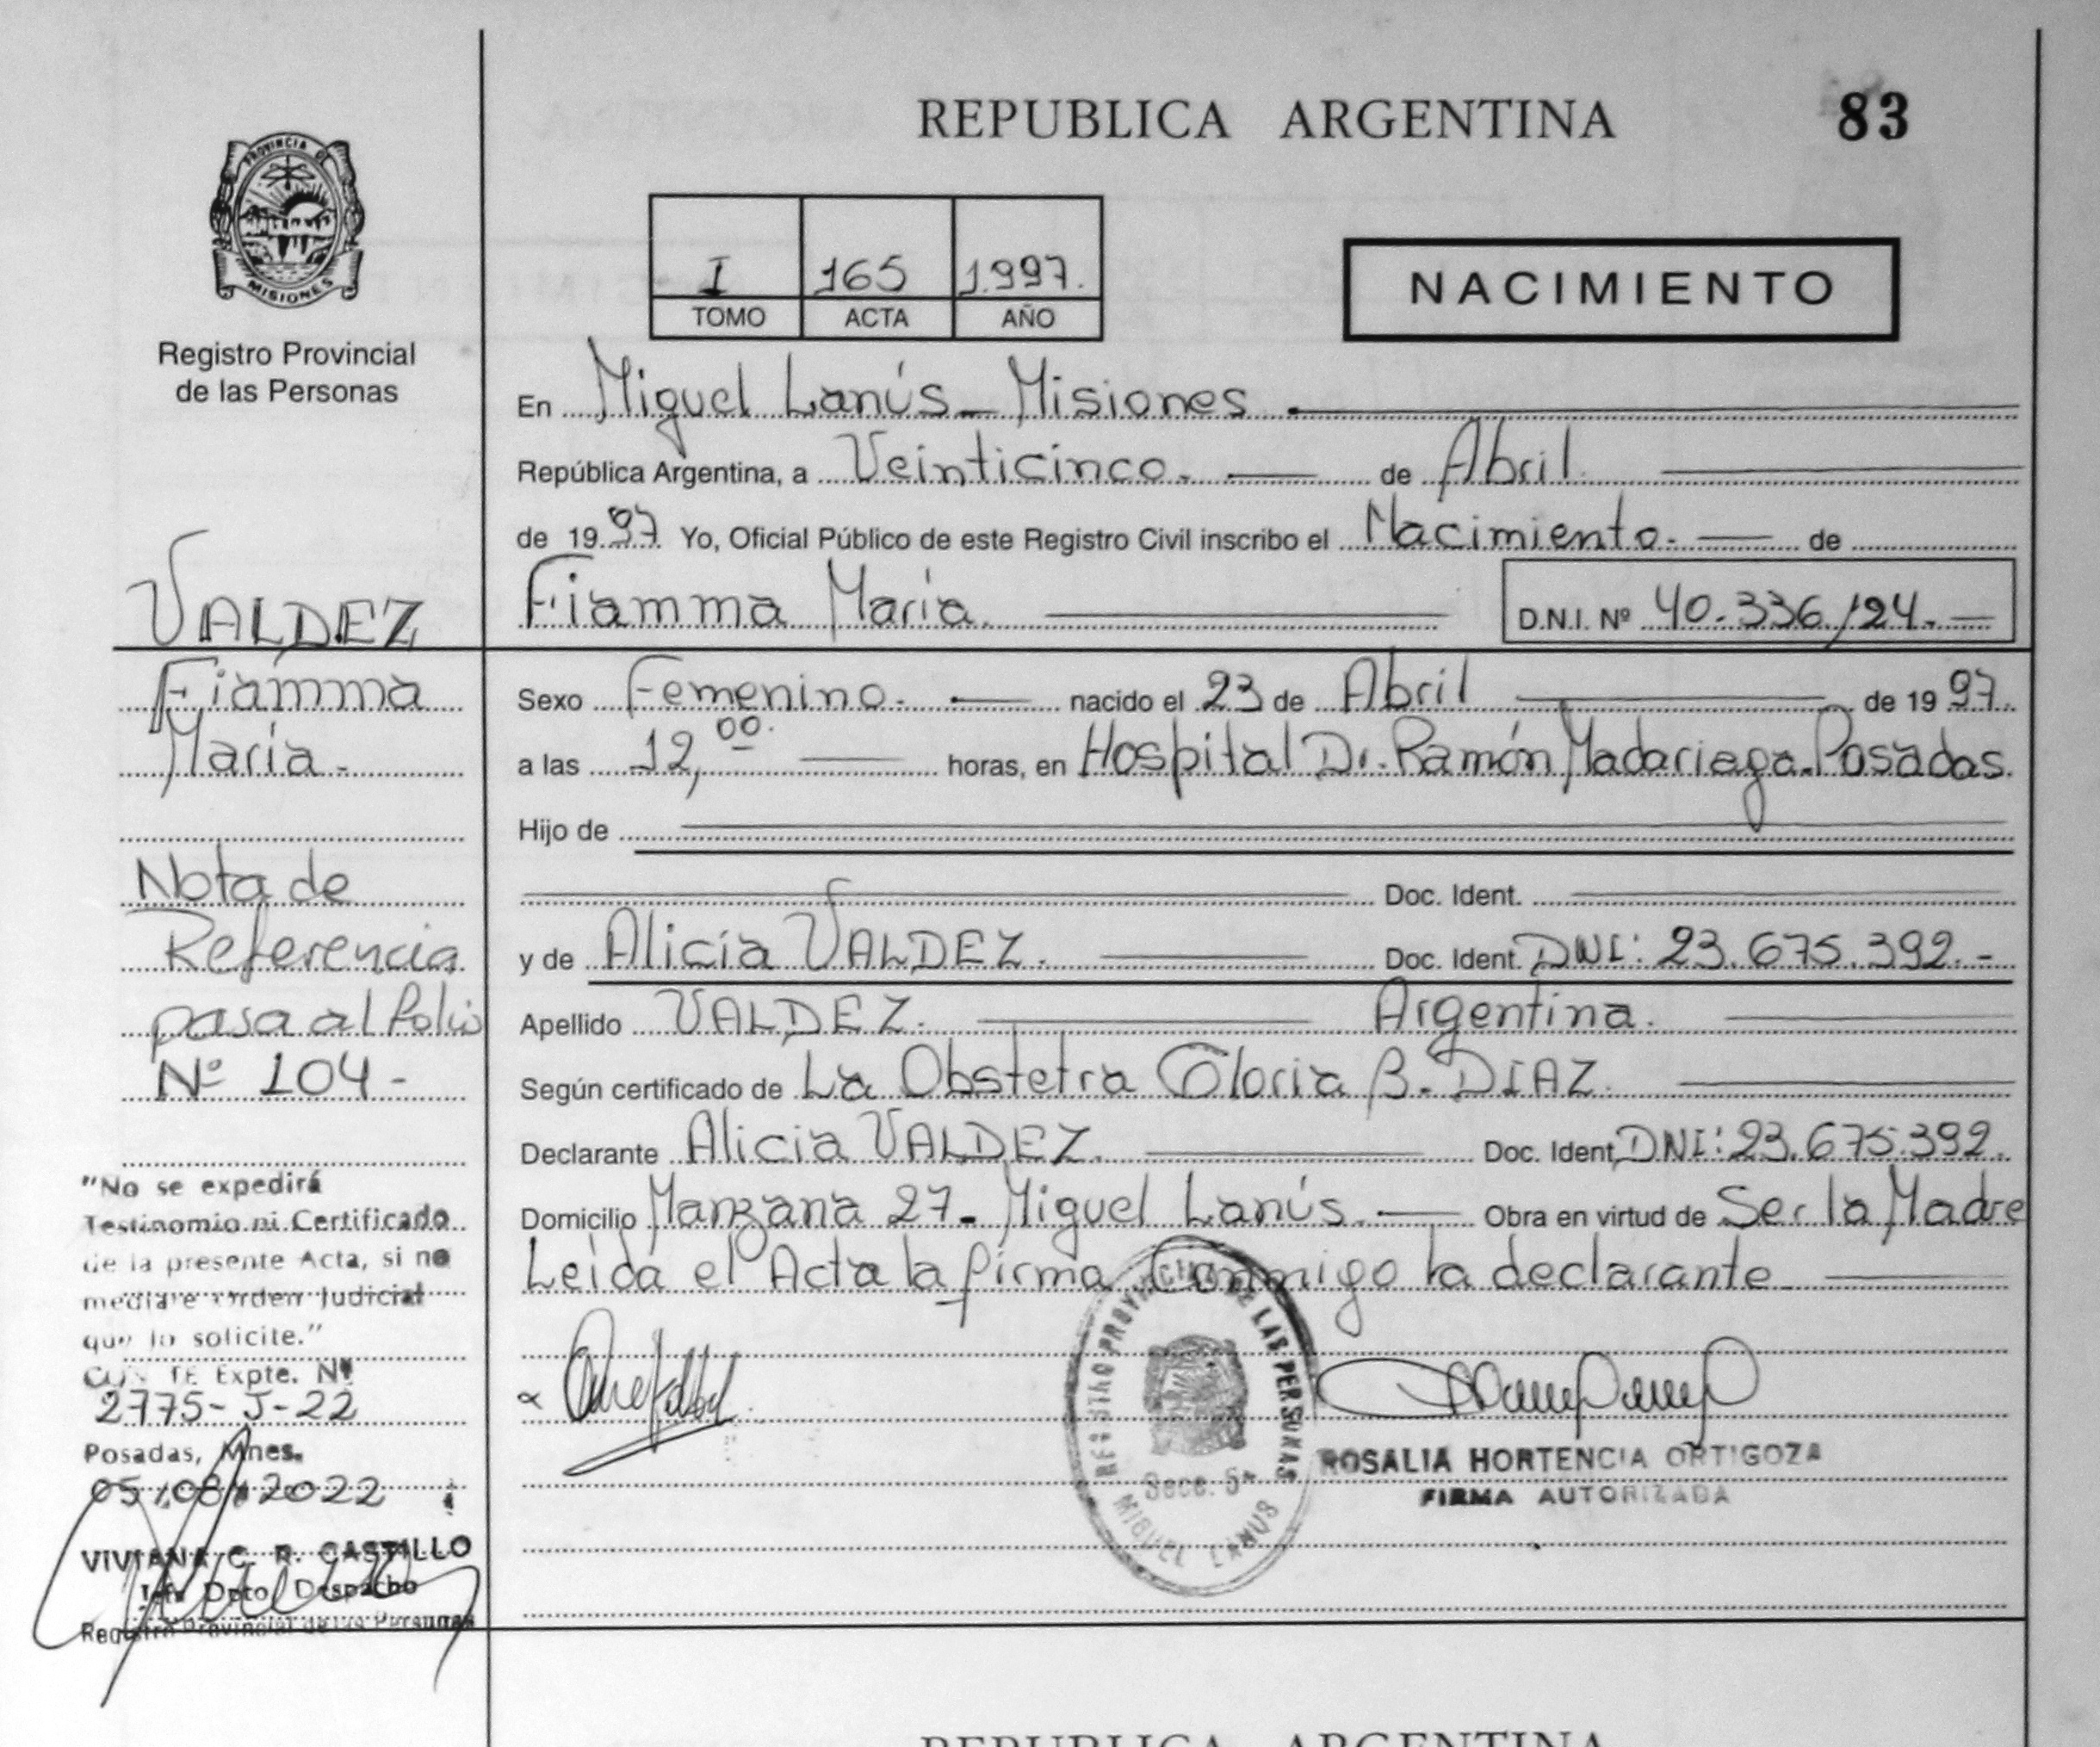 REPUBLICA ARGENTINA
83
PROVINCIA DE
MISIONES
Registro Provincial
de las Personas
I 165 1.997.
TOMO ACTA AÑO
NACIMIENTO
En Miguel Lanús - Misiones
República Argentina, a Veinticinco. de Abril.
de 1997 Yo, Oficial Público de este Registro Civil inscribo el Nacimiento. de
Fiamma María. D.N.I. Nº 40.336/24.-
Sexo Femenino. nacido el 23 de Abril de 1997.
a las 12,00. horas, en Hospital Dr. Ramón Madariaga. Posadas.
Hijo de
Doc. Ident.
y de Alicia VALDEZ. Doc. Ident. DNI: 23.675.392.-
Apellido VALDEZ. Argentina.
Según certificado de La Obstetra Gloria B. DIAZ.
Declarante Alicia VALDEZ. Doc. Ident. DNI: 23.675.392.
Domicilio Manzana 27. Miguel Lanús. Obra en virtud de Ser la Madre
Leida el Acta la firma Conmigo la declarante
REGISTRO PROVINCIAL DE LAS PERSONAS
Secc. 5ª
MIGUEL LANUS
ROSALIA HORTENCIA ORTIGOZA
FIRMA AUTORIZADA
VALDEZ
Fiamma
María.
Nota de
Referencia
pasa al folio
Nº 104-
"No se expedirá
Testinomio ni Certificado
de la presente Acta, si no
Orden Judicial
que lo solicite."
Expte. Nº
2775-J-22
Posadas, Mnes.
05/08/2022
VIVIANA C. R. CASTILLO
Dpto. Despacho
Registro Provincial de las Personas
REPUBLICA ARGENTINA